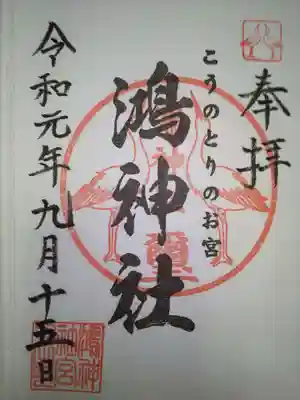 奉拝
こうのとりのお宮
鴻神社
令和元年九月十五日